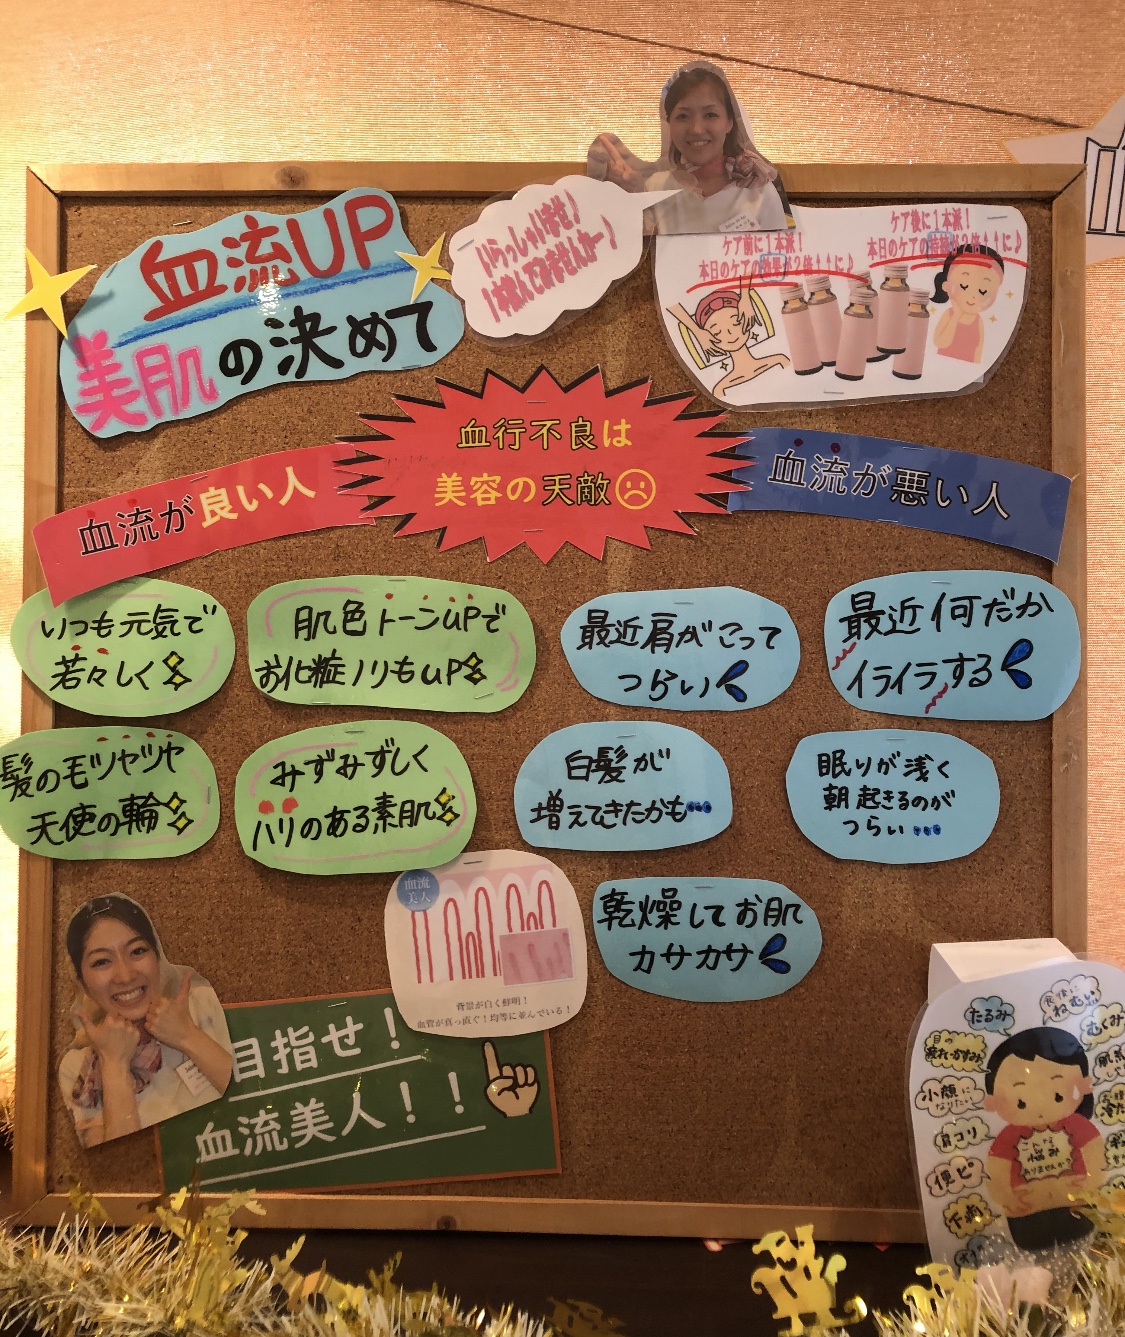 血流UP
美肌の決めて
いらっしゃいませ♪
1本飲んでみませんかー♪
ケア前に1本派!
本日のケアの効果が2倍↑↑に♪
ケア後に1本派!
本日のケアの
が2倍↑↑に♪
血行不良は
美容の天敵☹
血流が良い人
血流が悪い人
いつも元気で
若々しく
肌色トーンUPで
お化粧ノリもUP
最近肩がこって
つらい
最近何だか
イライラする
髪の毛ツヤツヤ
天使の輪
みずみずしく
ハリのある素肌
白髪が
増えてきたかも…
眠りが浅く
朝起きるのが
つらい…
乾燥してお肌
カサカサ
血流
美人
背景が白く鮮明!
血管が真っ直ぐ!均等に並んでいる!
目指せ!
血流美人!!
たるみ
食後に
ねむい
むくみ
目の
疲れ・かすみ
小顔に
なりたい
肩コリ
便ピ
下痢
こんな
悩み
ありませんか?